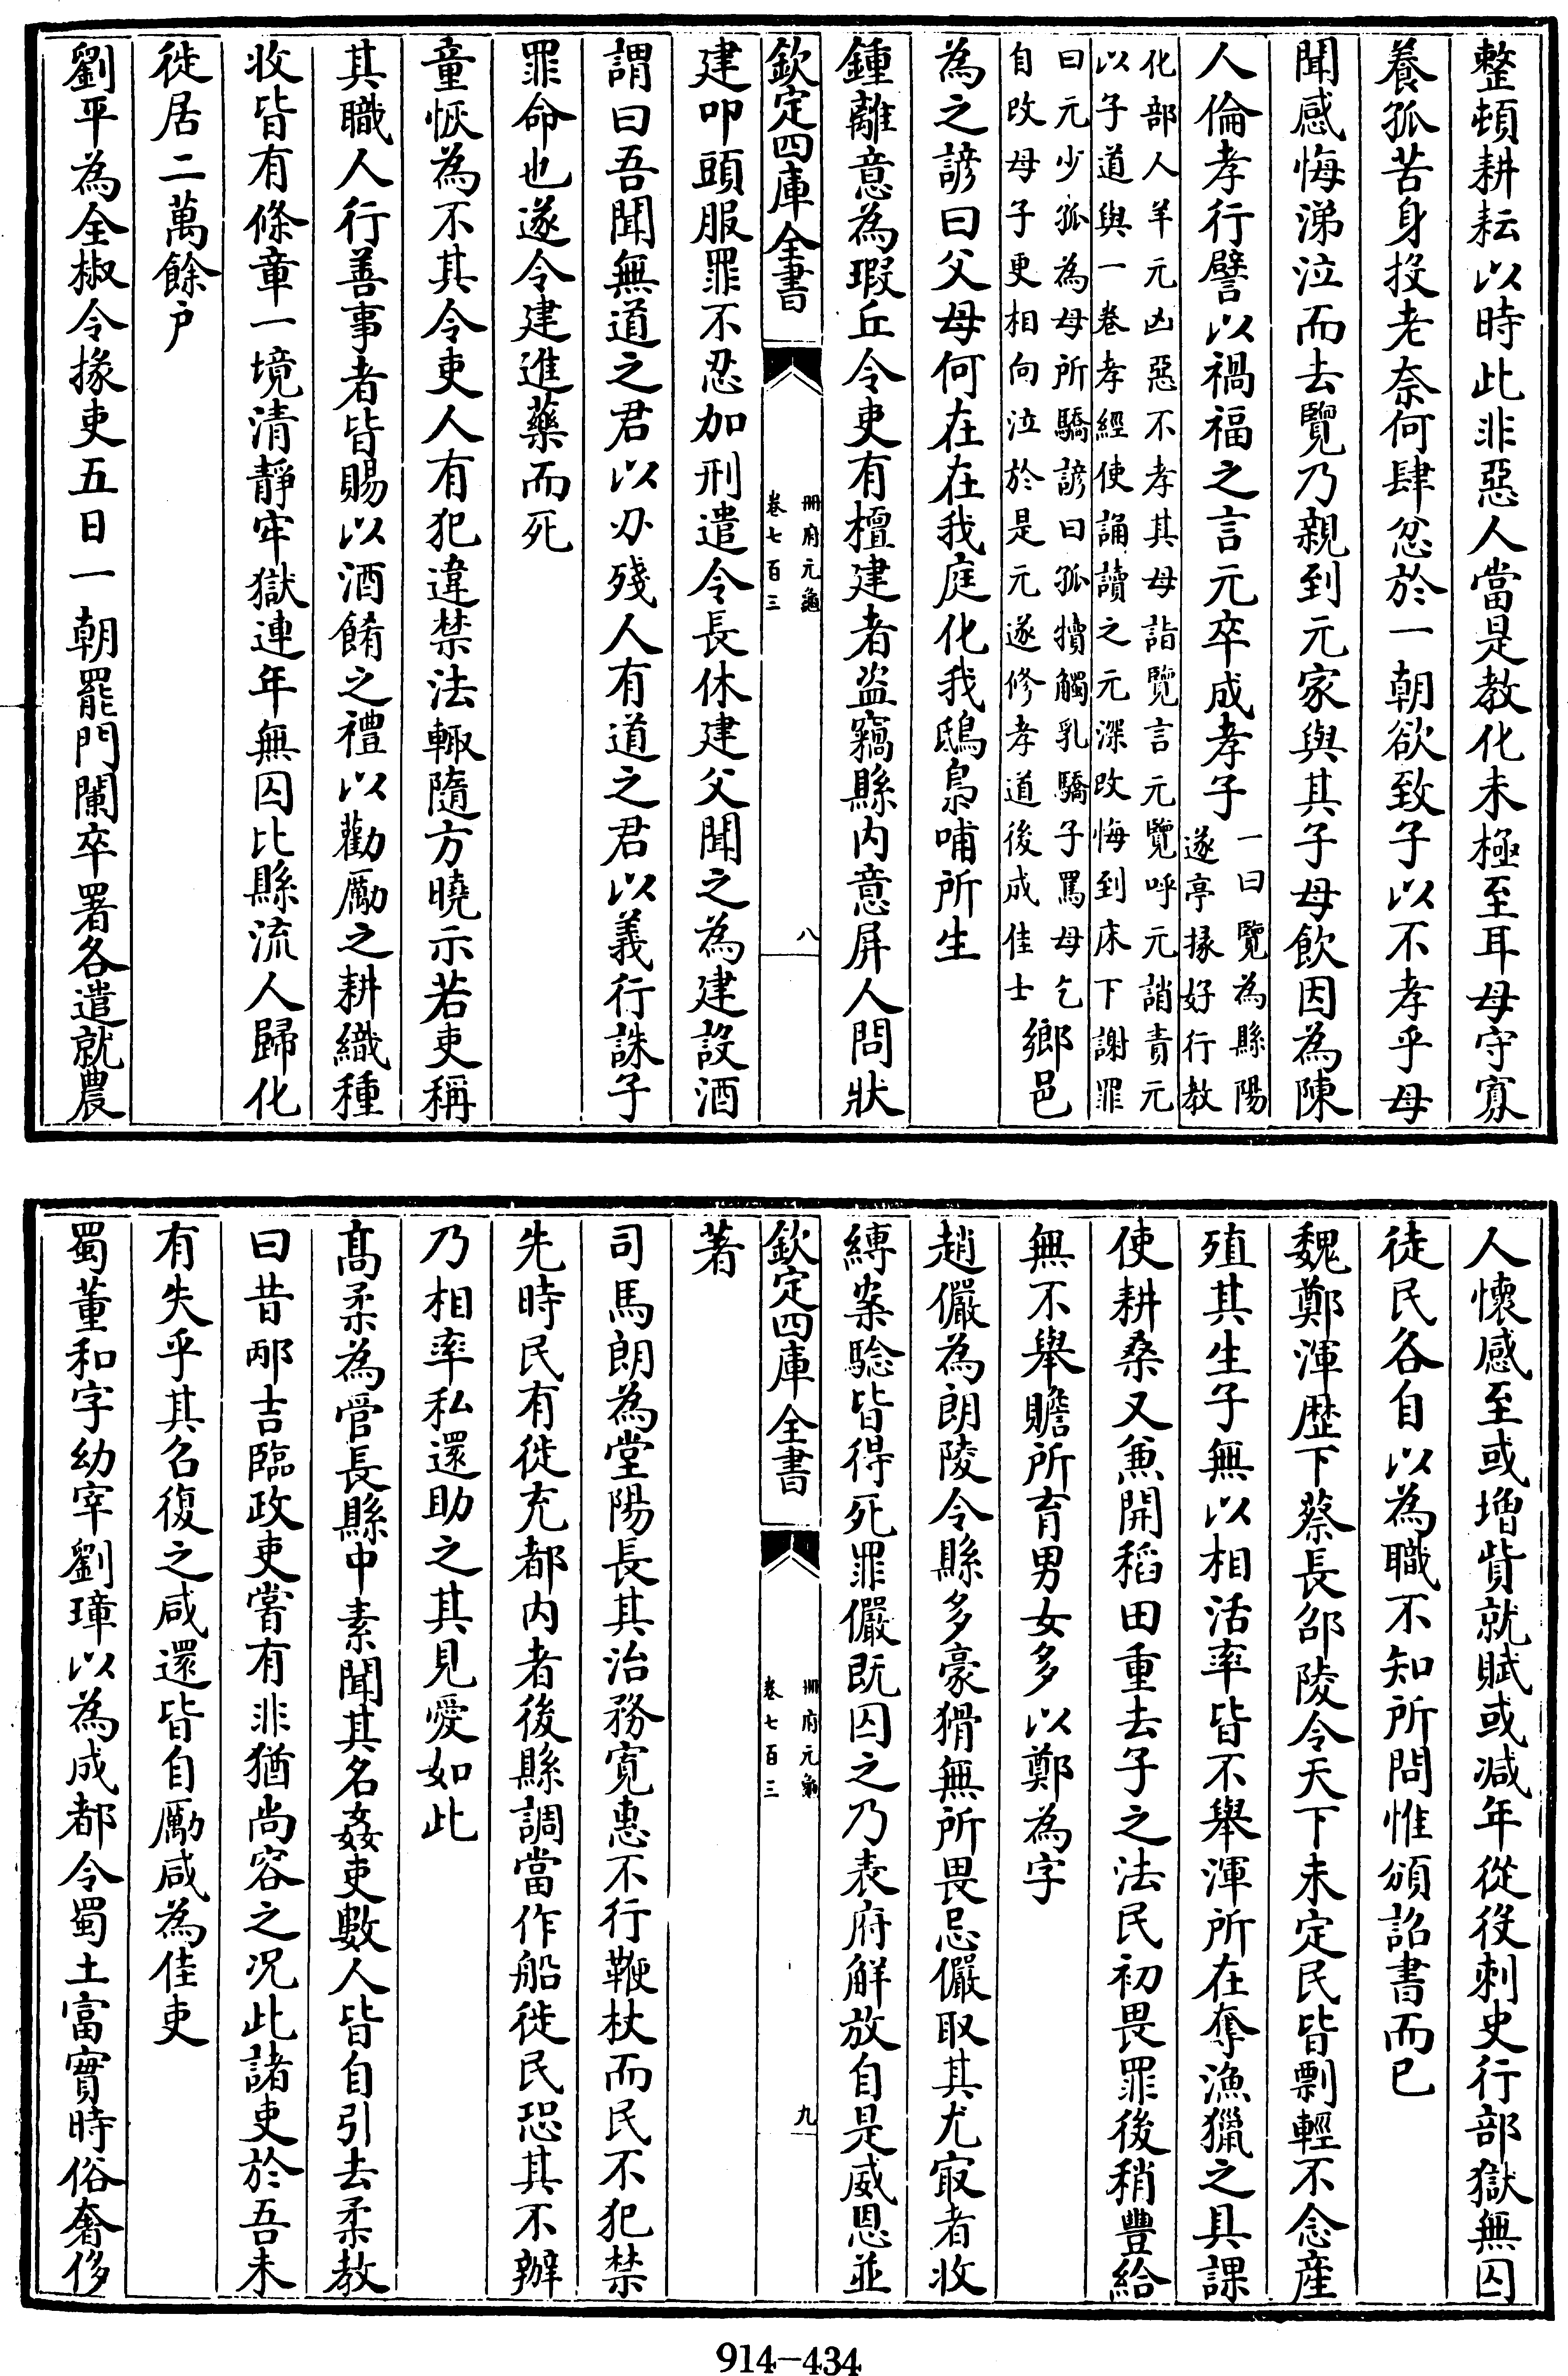 整頓耕耘以時此非惡人當是教化未極至耳母守寡
養孤苦身投老奈何肆忿於一朝欲致子以不孝乎母
聞感悔涕泣而去覽乃親到元家與其子母飲因為陳
人倫孝行譬以禍福之言元卒成孝子一曰覽為縣陽
遂亭掾好行教
化部人羊元凶惡不孝其母詣覽言元覽呼元誚責元
以子道與一卷孝經使誦讀之元深改悔到床下謝罪
曰元少孤為母所驕諺曰孤犢觸乳驕子罵母乞
自改母子更相向泣於是元遂修孝道後成佳士鄉邑
為之諺曰父母何在在我庭化我鴟梟哺所生
鍾離意為瑕丘令吏有檀建者盜竊縣内意屏人問狀
欽定四庫全書
冊府元龜
卷七百三
八
建叩頭服罪不忍加刑遣令長休建父聞之為建設酒
謂曰吾聞無道之君以刃殘人有道之君以義行誅子
罪命也遂令建進藥而死
童恢為不其令吏人有犯違禁法輒隨方曉示若吏稱
其職人行善事者皆賜以酒餚之禮以勸勵之耕織種
收皆有條章一境清靜牢獄連年無囚比縣流人歸化
徙居二萬餘户
劉平為全椒令掾吏五日一朝罷門闌卒署各遣就農
人懷感至或增貲就賦或減年從役刺史行部獄無囚
徒民各自以為職不知所問惟頒詔書而已
魏鄭渾歴下蔡長邵陵令天下未定民皆剽輕不念産
殖其生子無以相活率皆不舉渾所在奪漁獵之具課
使耕桑又兼開稻田重去子之法民初畏罪後稍豐給
無不舉贍所育男女多以鄭為字
趙儼為朗陵令縣多豪猾無所畏忌儼取其尤㝡者收
縛案騐皆得死罪儼既囚之乃表府解放自是威恩並
欽定四庫全書
冊府元龜
卷七百三
九
著
司馬朗為堂陽長其治務寛惠不行鞭杖而民不犯禁
先時民有徙充都内者後縣調當作船徙民恐其不辦
乃相率私還助之其見愛如此
髙柔為菅長縣中素聞其名姦吏數人皆自引去柔教
曰昔邴吉臨政吏嘗有非猶尚容之况此諸吏於吾未
有失乎其召復之咸還皆自勵咸為佳吏
蜀董和字幼宰劉璋以為成都令蜀土富實時俗奢侈
914-434